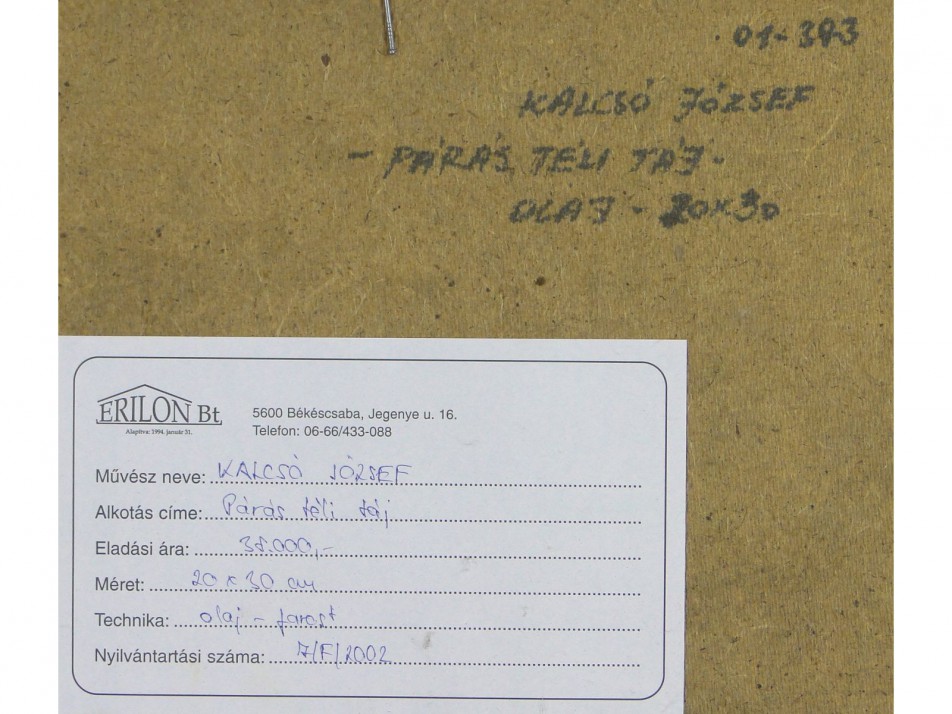 01-393
KALCSÓ JÓZSEF
- PÁRÁS TÉLI TÁJ.
OLAJ - 20x30
ERILON Bt.
Alapítva: 1994. január 31.
5600 Békéscsaba, Jegenye u. 16.
Telefon: 06-66/433-088
Művész neve: KALCSÓ JÓZSEF
Alkotás címe: Párás téli táj
Eladási ára: 38.000,-
Méret: 20 x 30 cm
Technika: olaj - farost
Nyilvántartási száma: 7/F/2002